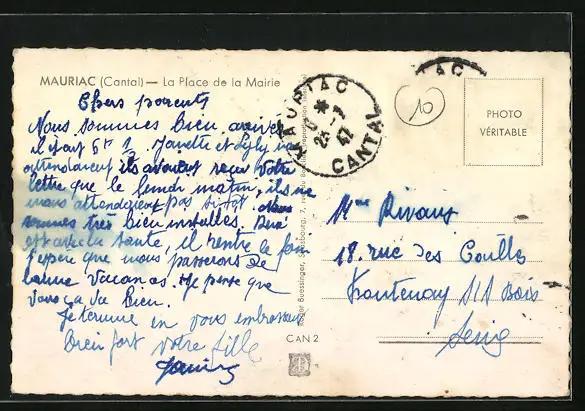 MAURIAC (Cantal) — La Place de la Mairie
Chers parents
Nous sommes bien arrivés
il était 6h 1. Janette et
attendaient ils avaient reçu votre
lettre que le lundi matin, ils ne
nous attendaient pas si tôt. Nous
sommes très bien installés.
la santé, il rentre le foin
J'espère que nous passerons de
bonne vacances. Je pense que
vous ça va bien.
Je termine en vous embrassant
bien fort votre fille
MAURIAC
CANTAL
10
PHOTO
VÉRITABLE
Mme Rivaux
18. rue des
Fontenay s/s Bois
Seine
CAN 2